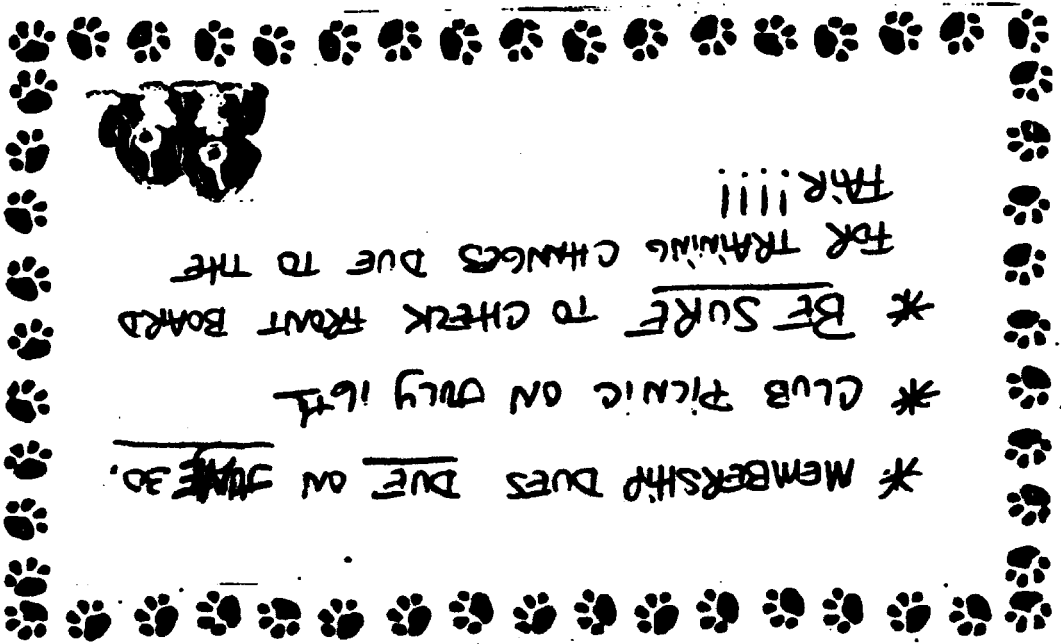 * MEMBERSHIP DUES DUE ON JUNE 30.
* CLUB PICNIC ON JULY 16th
* BE SURE TO CHECK FRONT BOARD
FOR TRAINING CHANGES DUE TO THE
FAIR !!!!